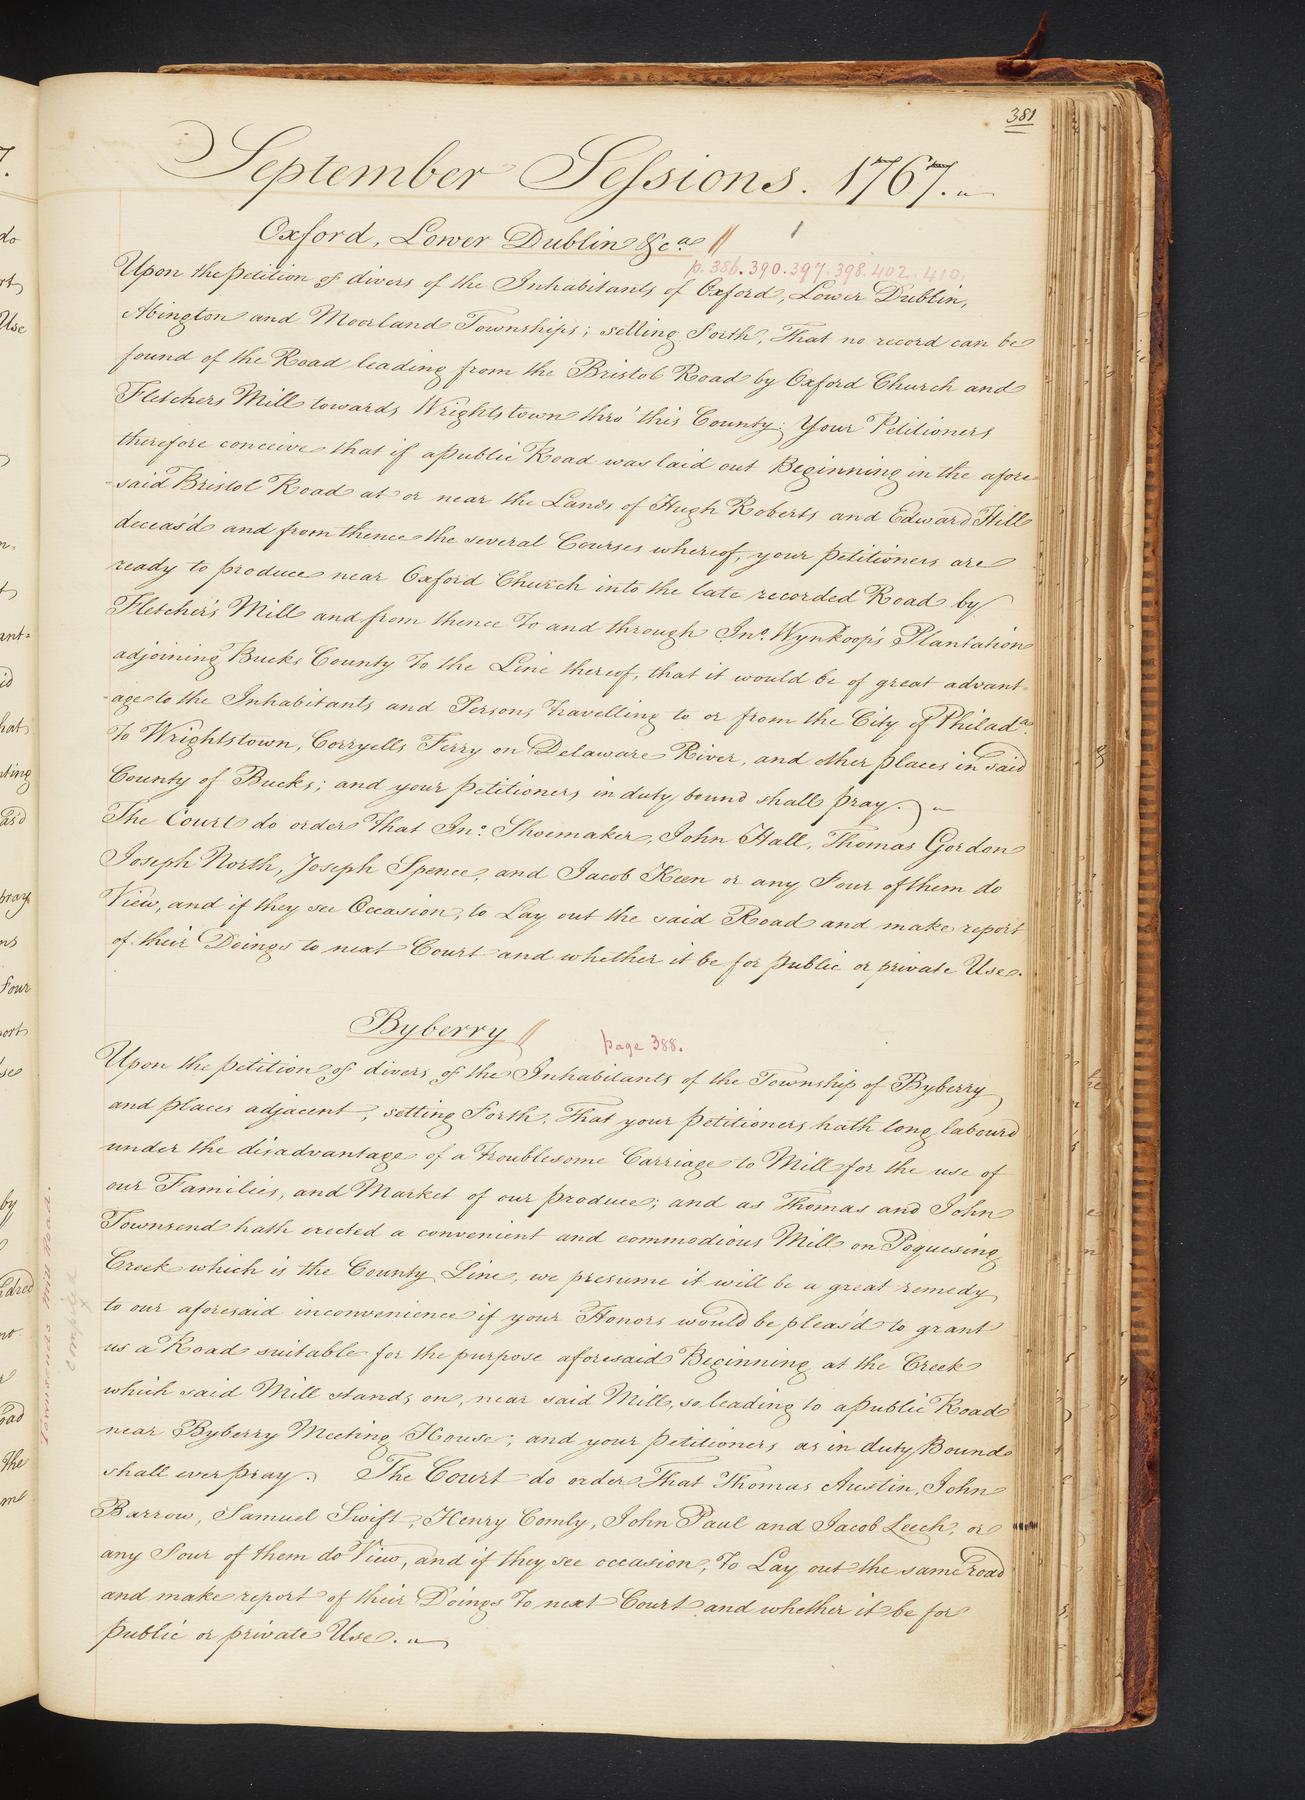 381
September Sessions. 1767.
Oxford, Lower Dublin &ca
p. 386. 390. 397. 398. 402. 410.
Upon the petition of divers of the Inhabitants of Oxford, Lower Dublin,
Abington and Moorland Townships; setting Forth, That no record can be
found of the Road leading from the Bristol Road by Oxford Church and
Fletchers Mill towards Wrightstown thro' this County; Your Petitioners
therefore conceive that if a public Road was laid out Beginning in the afore
-said Bristol Road at or near the Lands of Hugh Roberts and Edward Hill
deceas'd and from thence the several Courses whereof, your petitioners are
ready to produce near Oxford Church into the late recorded Road by
Fletcher's Mill and from thence To and through Jno. Wynkoop's Plantation
adjoining Bucks County To the Line thereof, that it would be of great advant-
-age to the Inhabitants and Persons Travelling to or from the City of Philada.
To Wrightstown, Corryells Ferry on Delaware River, and other places in said
County of Bucks; and your petitioners in duty bound shall pray.
The Court do order That Jno. Shoemaker, John Hall, Thomas Gordon
Joseph North, Joseph Spence, and Jacob Keen or any Four of them do
View, and if they see Occasion, to Lay out the said Road and make report
of their Doings to next Court and whether it be for public or private Use.
Byberry
page 388.
Upon the petition of divers of the Inhabitants of the Township of Byberry
and places adjacent, setting Forth, That your petitioners hath long labourd
under the disadvantage of a Troublesome Carriage to Mill for the use of
our Families, and Market of our produce; and as Thomas and John
Townsend hath erected a convenient and commodious Mill on Poquesing
Creek which is the County Line, we presume it will be a great remedy
to our aforesaid inconvenience if your Honors would be pleas'd to grant
us a Road suitable for the purpose aforesaid Beginning at the Creek
which said Mill stands on, near said Mill, so leading to a public Road
near Byberry Meeting House; and your petitioners as in duty Bound
shall ever pray. The Court do order That Thomas Austin, John
Barrow, Samuel Swift, Henry Comly, John Paul and Jacob Leech, or
any Four of them do View, and if they see occasion, To Lay out the same road
and make report of their Doings To next Court and whether it be for
public or private Use.
Townsends Mill Road.